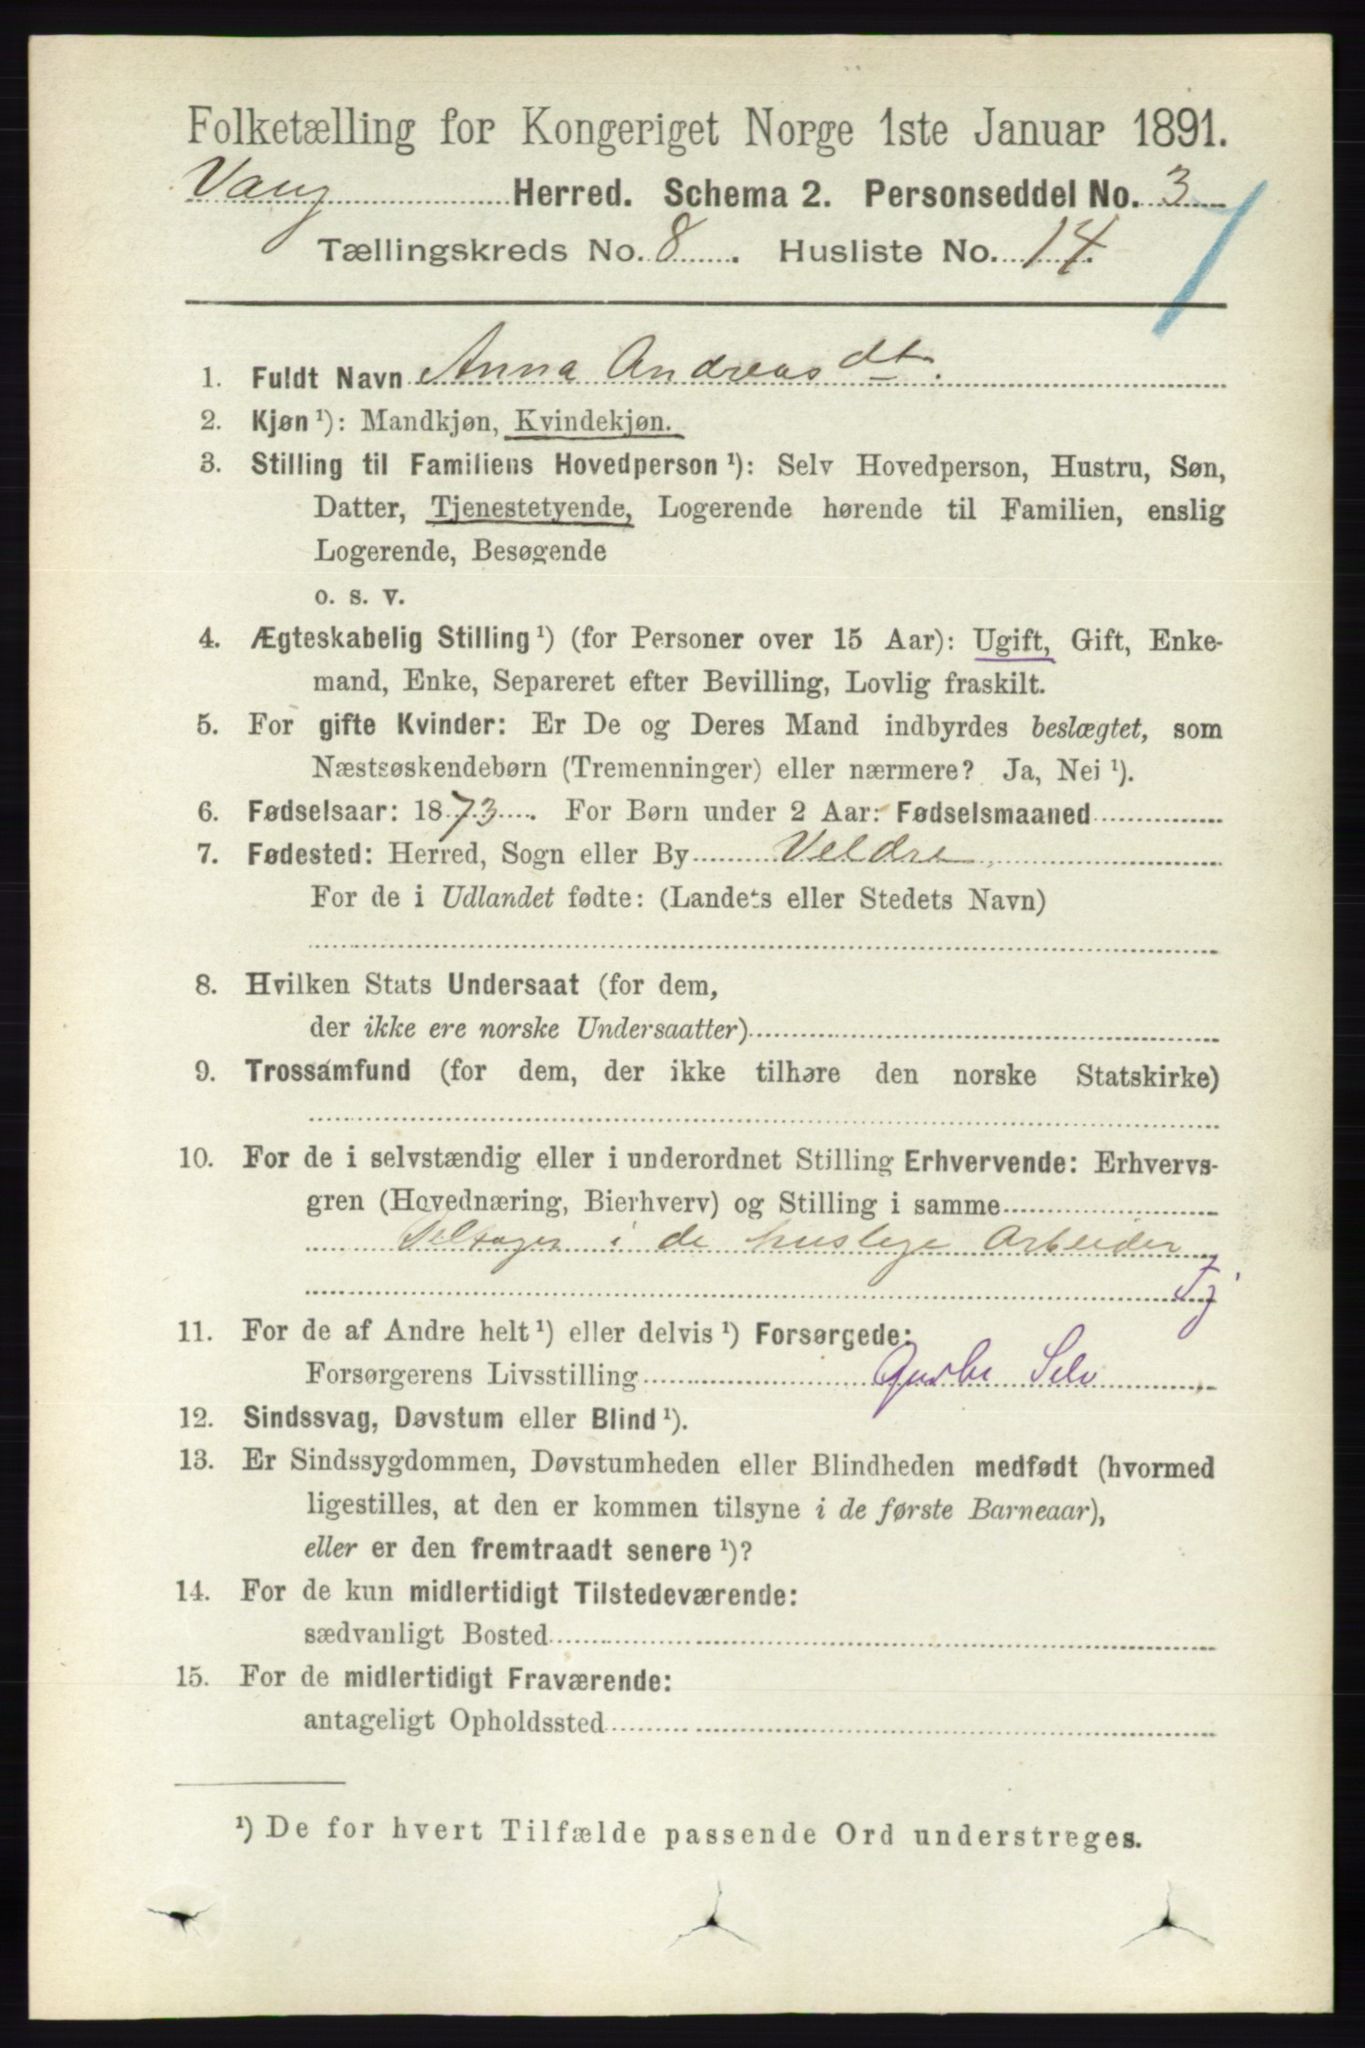 Folketælling for Kongeriget Norge 1ste Januar 1891.
Vang Herred. Schema 2. Personseddel No. 3
Tællingskreds No. 8. Husliste No. 14.
1. Fuldt Navn Anna Andreasdt.
2. Kjøn ¹): Mandkjøn, Kvindekjøn.
3. Stilling til Familiens Hovedperson ¹): Selv Hovedperson, Hustru, Søn,
Datter, Tjenestetyende, Logerende hørende til Familien, enslig
Logerende, Besøgende
o. s. v.
4. Ægteskabelig Stilling ¹) (for Personer over 15 Aar): Ugift, Gift, Enke-
mand, Enke, Separeret efter Bevilling, Lovlig fraskilt.
5. For gifte Kvinder: Er De og Deres Mand indbyrdes beslægtet, som
Næstsøskendebørn (Tremenninger) eller nærmere? Ja, Nei ¹).
6. Fødselsaar: 1873. For Børn under 2 Aar: Fødselsmaaned
7. Fødested: Herred, Sogn eller By Veldre
For de i Udlandet fødte: (Landets eller Stedets Navn)
8. Hvilken Stats Undersaat (for dem,
der ikke ere norske Undersaatter)
9. Trossamfund (for dem, der ikke tilhøre den norske Statskirke)
10. For de i selvstændig eller i underordnet Stilling Erhvervende: Erhvervs-
gren (Hovednæring, Bierhverv) og Stilling i samme
Deltager i de huslige Arbeider
Tj
11. For de af Andre helt ¹) eller delvis ¹) Forsørgede:
Forsørgerens Livsstilling Selv
12. Sindssvag, Døvstum eller Blind ¹).
13. Er Sindssygdommen, Døvstumheden eller Blindheden medfødt (hvormed
ligestilles, at den er kommen tilsyne i de første Barneaar),
eller er den fremtraadt senere ¹)?
14. For de kun midlertidigt Tilstedeværende:
sædvanligt Bosted
15. For de midlertidigt Fraværende:
antageligt Opholdssted
¹) De for hvert Tilfælde passende Ord understreges.